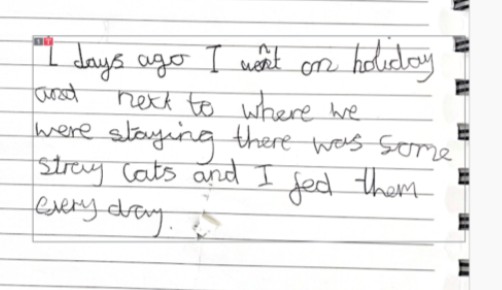 days ago I went on holiday
and next to where we
were staying there was some
stray cats and I fed them
every day.